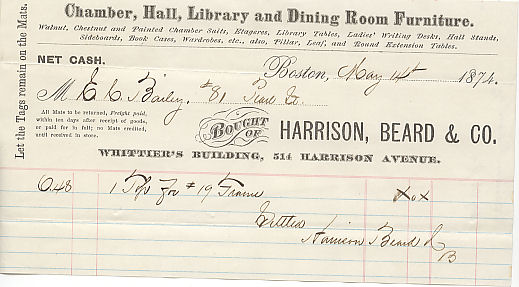 Chamber, Hall, Library and Dining Room Furniture.
Walnut, Chestnut and Painted Chamber Suits, Etageres, Library Tables, Ladies' Writing Desks, Hall Stands,
Sideboards, Book Cases, Wardrobes, etc., also, Pillar, Leaf, and Round Extension Tables.
Let the Tags remain on the Mats.
NET CASH.
Boston, May 14th 1874.
M E. C. Bailey. #81 Pearl St.
All Mats to be returned, Freight paid,
within ten days after receipt of goods,
or paid for in full; no Mats credited,
until received in store.
BOUGHT OF
HARRISON, BEARD & CO.
WHITTIER'S BUILDING, 514 HARRISON AVENUE.
648 1 Top For #19 Frame xox
Settled
Harrison Beard & Co
B